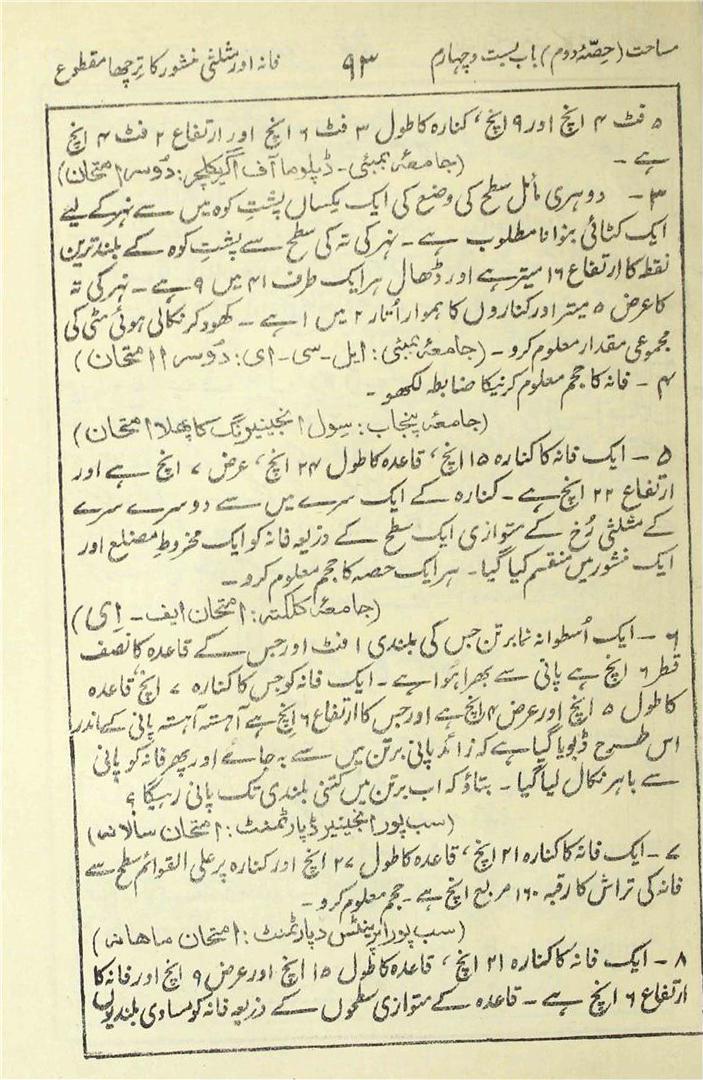 مساحت (حصّۂ دوم) باب بست و چہارم ۹۳ فانہ اور مثلثی منشور کا ترچھا مقطوع
۵ فٹ ۴ انچ اور ۹ انچ، کنارہ کا طول ۳ فٹ ۶ انچ اور ارتفاع ۲ فٹ ۴ انچ
ہے ۔ (جامعۂ بمبئی ۔ ڈپلوما آف اگریکلچر: دُوسرا امتحان)
۳ ۔ دوہری مائل سطح کی وضع کی ایک یکساں پشتِ کوہ میں سے نہر کے لیے
ایک کٹائی بنوانا مطلوب ہے ۔ نہر کی تہ کی سطح سے پشتِ کوہ کے بلند ترین
نقطہ کا ارتفاع ۱۶ میتر ہے اور ڈھال ہر ایک طرف ۴۱ میں ۹ ہے ۔ نہر کی تہ
کا عرض ۵ میتر اور کناروں کا ہموار اُتار ۲ میں ۱ ہے ۔ کھود کر نکالی ہوئی مٹی کی
مجموعی مقدار معلوم کرو ۔ (جامعۂ بمبئی: ایل ۔ سی ۔ ای: دُوسرا امتحان)
۴ ۔ فانہ کا حجم معلوم کرنیکا ضابطہ لکھو ۔
(جامعۂ پنجاب: سِول انجینیرنگ کا پھلا امتحان)
۵ ۔ ایک فانہ کا کنارہ ۱۵ انچ، قاعدہ کا طول ۲۴ انچ، عرض ۷ انچ ہے اور
ارتفاع ۲۲ انچ ہے ۔ کنارہ کے ایک سرے میں سے دوسرے سرے
کے مثلثی رُخ کے متوازی ایک سطح کے ذریعہ فانہ کو ایک مخروطِ مضلع اور
ایک منشور میں منقسم کیا گیا ۔ ہر ایک حصہ کا حجم معلوم کرو ۔
(جامعۂ کلکتہ: امتحان ایف ۔ اِی)
۶ ۔ ایک اُسطوانہ نما برتن جس کی بلندی ۱ فٹ اور جس کے قاعدہ کا نصف
قطر ۶ انچ ہے پانی سے بھرا ہوا ہے ۔ ایک فانہ کو جس کا کنارہ ۷ انچ، قاعدہ
کا طول ۵ انچ اور عرض ۴ انچ ہے اور جس کا ارتفاع ۶ انچ ہے آہستہ آہستہ پانی کے اندر
اس طرح ڈبویا گیا ہے کہ زائد پانی برتن میں سے بہ جائے اور پھر فانہ کو پانی
سے باہر نکال لیا گیا ۔ بتاؤ کہ اب برتن میں کتنی بلندی تک پانی رہیگا ؟
(سب پور انجینیر ڈپارٹمنٹ: امتحان سالانہ)
۷ ۔ ایک فانہ کا کنارہ ۲۱ انچ، قاعدہ کا طول ۲۷ انچ اور کنارہ پر علی القوائم سطح سے
فانہ کی تراش کا رقبہ ۱۶۰ مربع انچ ہے ۔ حجم معلوم کرو ۔
(سب پور اپرینٹس دپارٹمنٹ: امتحان ماھانہ)
۸ ۔ ایک فانہ کا کنارہ ۲۱ انچ، قاعدہ کا طول ۱۵ انچ اور عرض ۹ انچ اور فانہ کا
ارتفاع ۶ انچ ہے ۔ قاعدہ کے متوازی سطحوں کے ذریعہ فانہ کو مساوی بلندیوں